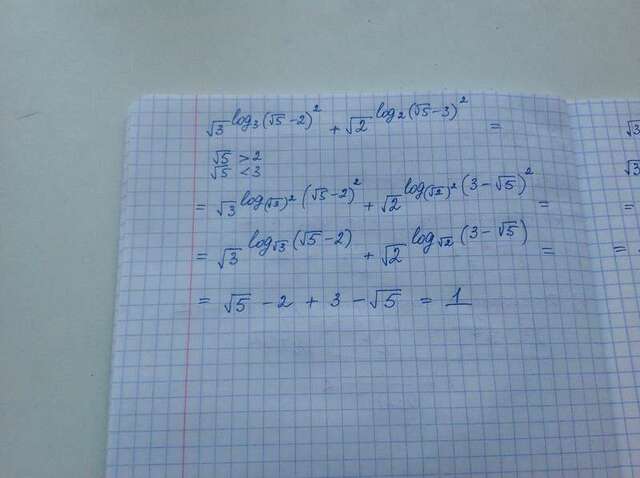 √3^log₃(√5-2)² + √2^log₂(√5-3)² =
√5 > 2
√5 < 3
= √3^log_(√3)²(√5-2)² + √2^log_(√2)²(3-√5)² =
= √3^log_√3(√5-2) + √2^log_√2(3-√5) =
= √5 - 2 + 3 - √5 = 1
√3
√3
=
=